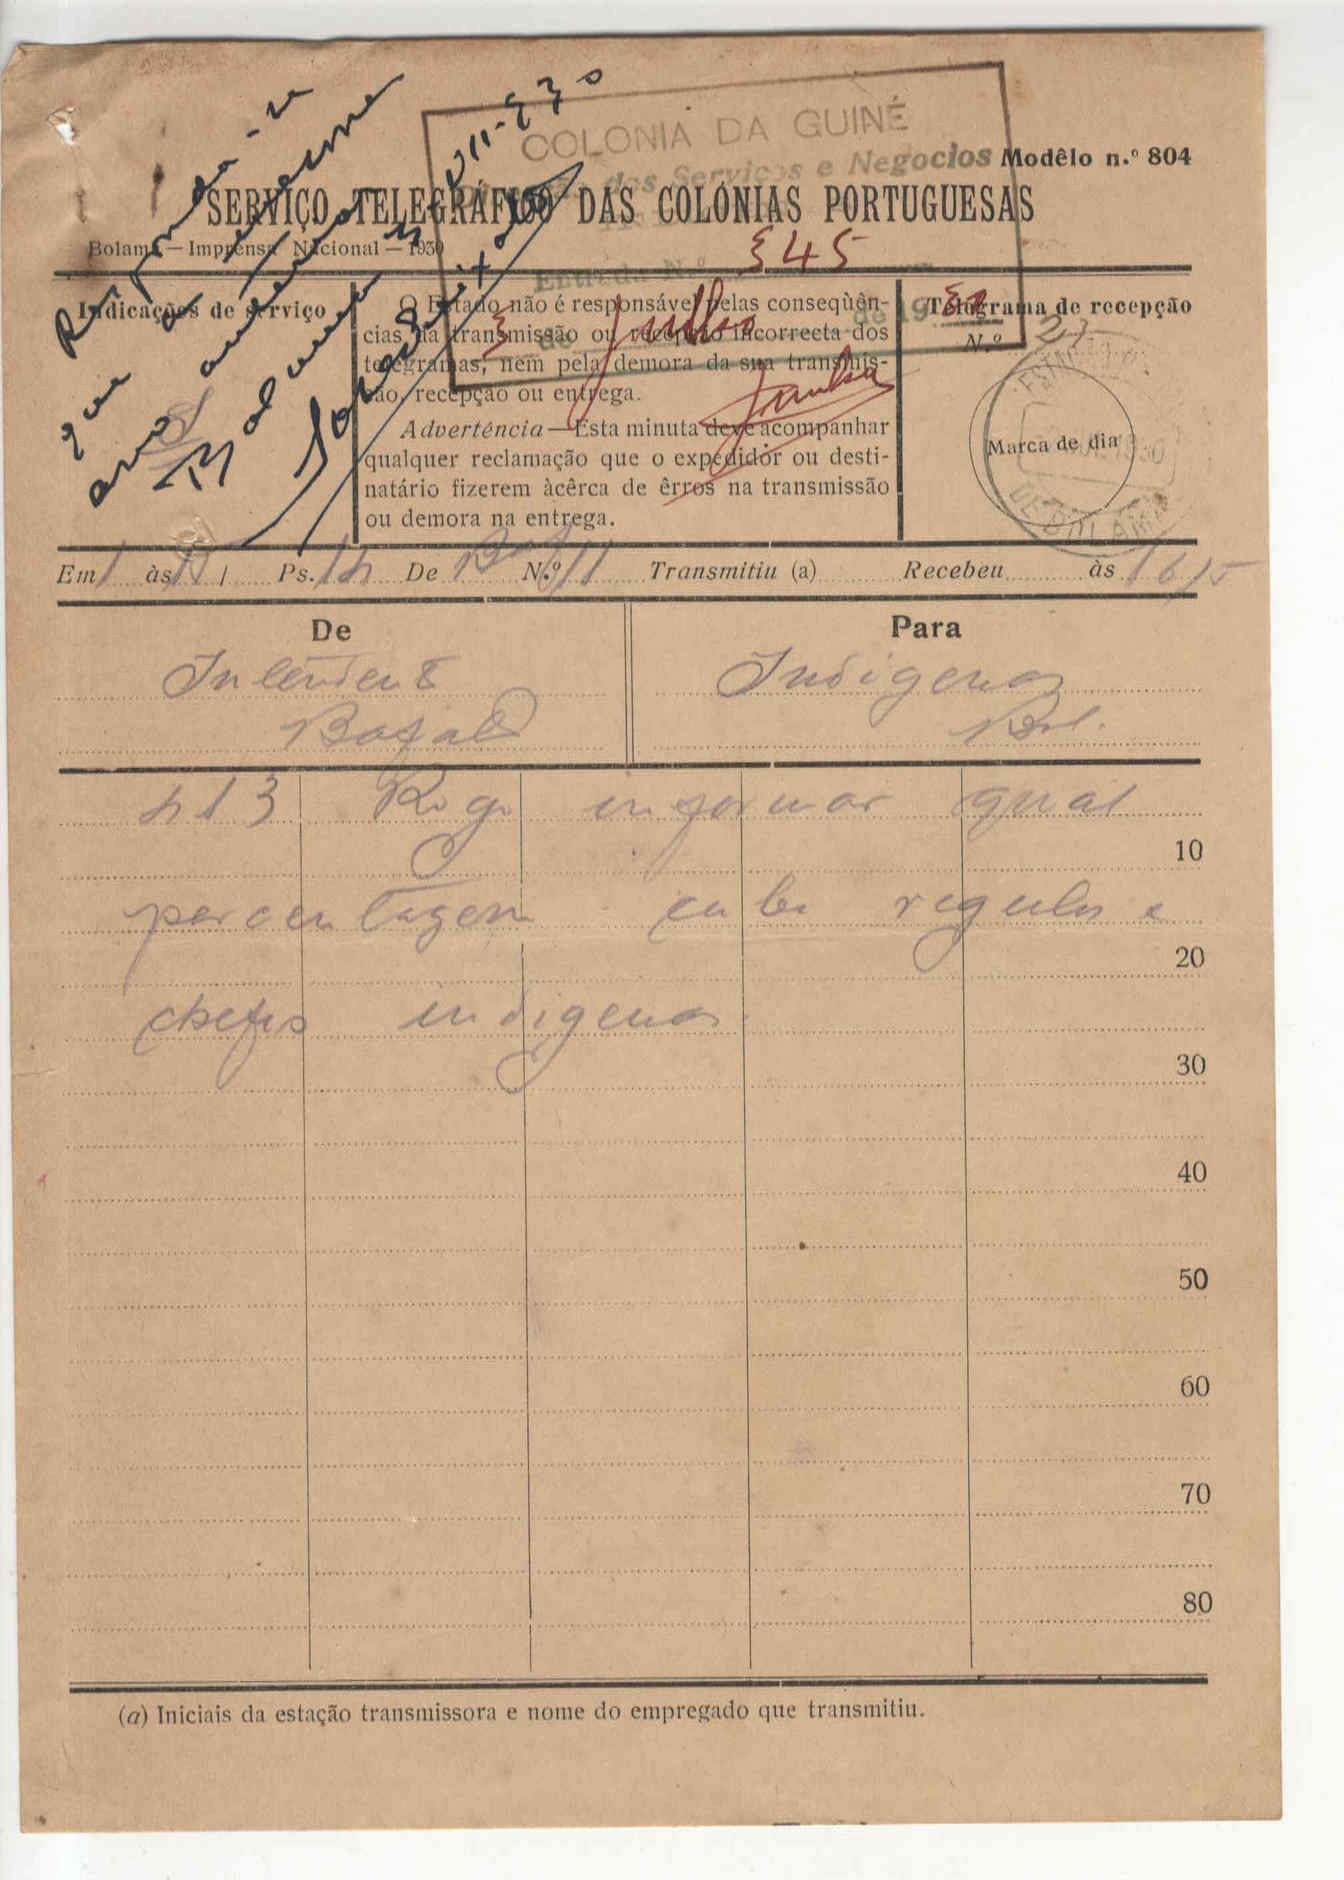 COLONIA DA GUINÉ
dos Serviços e Negocios
Modêlo n.º 804
SERVIÇO TELEGRÁFICO DAS COLÓNIAS PORTUGUESAS
Bolama — Imprensa Nacional — 1930
Entrada N.º 345
3 de Julho de 1930
Indicações de serviço
O Estado não é responsável pelas conseqùên-
cias da transmissão ou recepção incorrecta dos
telegramas, nem pela demora da sua transmis-
são, recepção ou entrega.
Advertência — Esta minuta deve acompanhar
qualquer reclamação que o expedidor ou desti-
natário fizerem àcêrca de êrros na transmissão
ou demora na entrega.
Telegrama de recepção
N.º 27
Marca de dia
Em 1 às Ps. 14 De Baf N.º 11 Transmitiu (a) Recebeu às 16/5
De
Para
Intendent
Bafatá
Indigenas
Bol.
413 Rogo informar qual
10
percentagem cabe regulos e
20
chefes indigenas
30
40
50
60
70
80
(a) Iniciais da estação transmissora e nome do empregado que transmitiu.